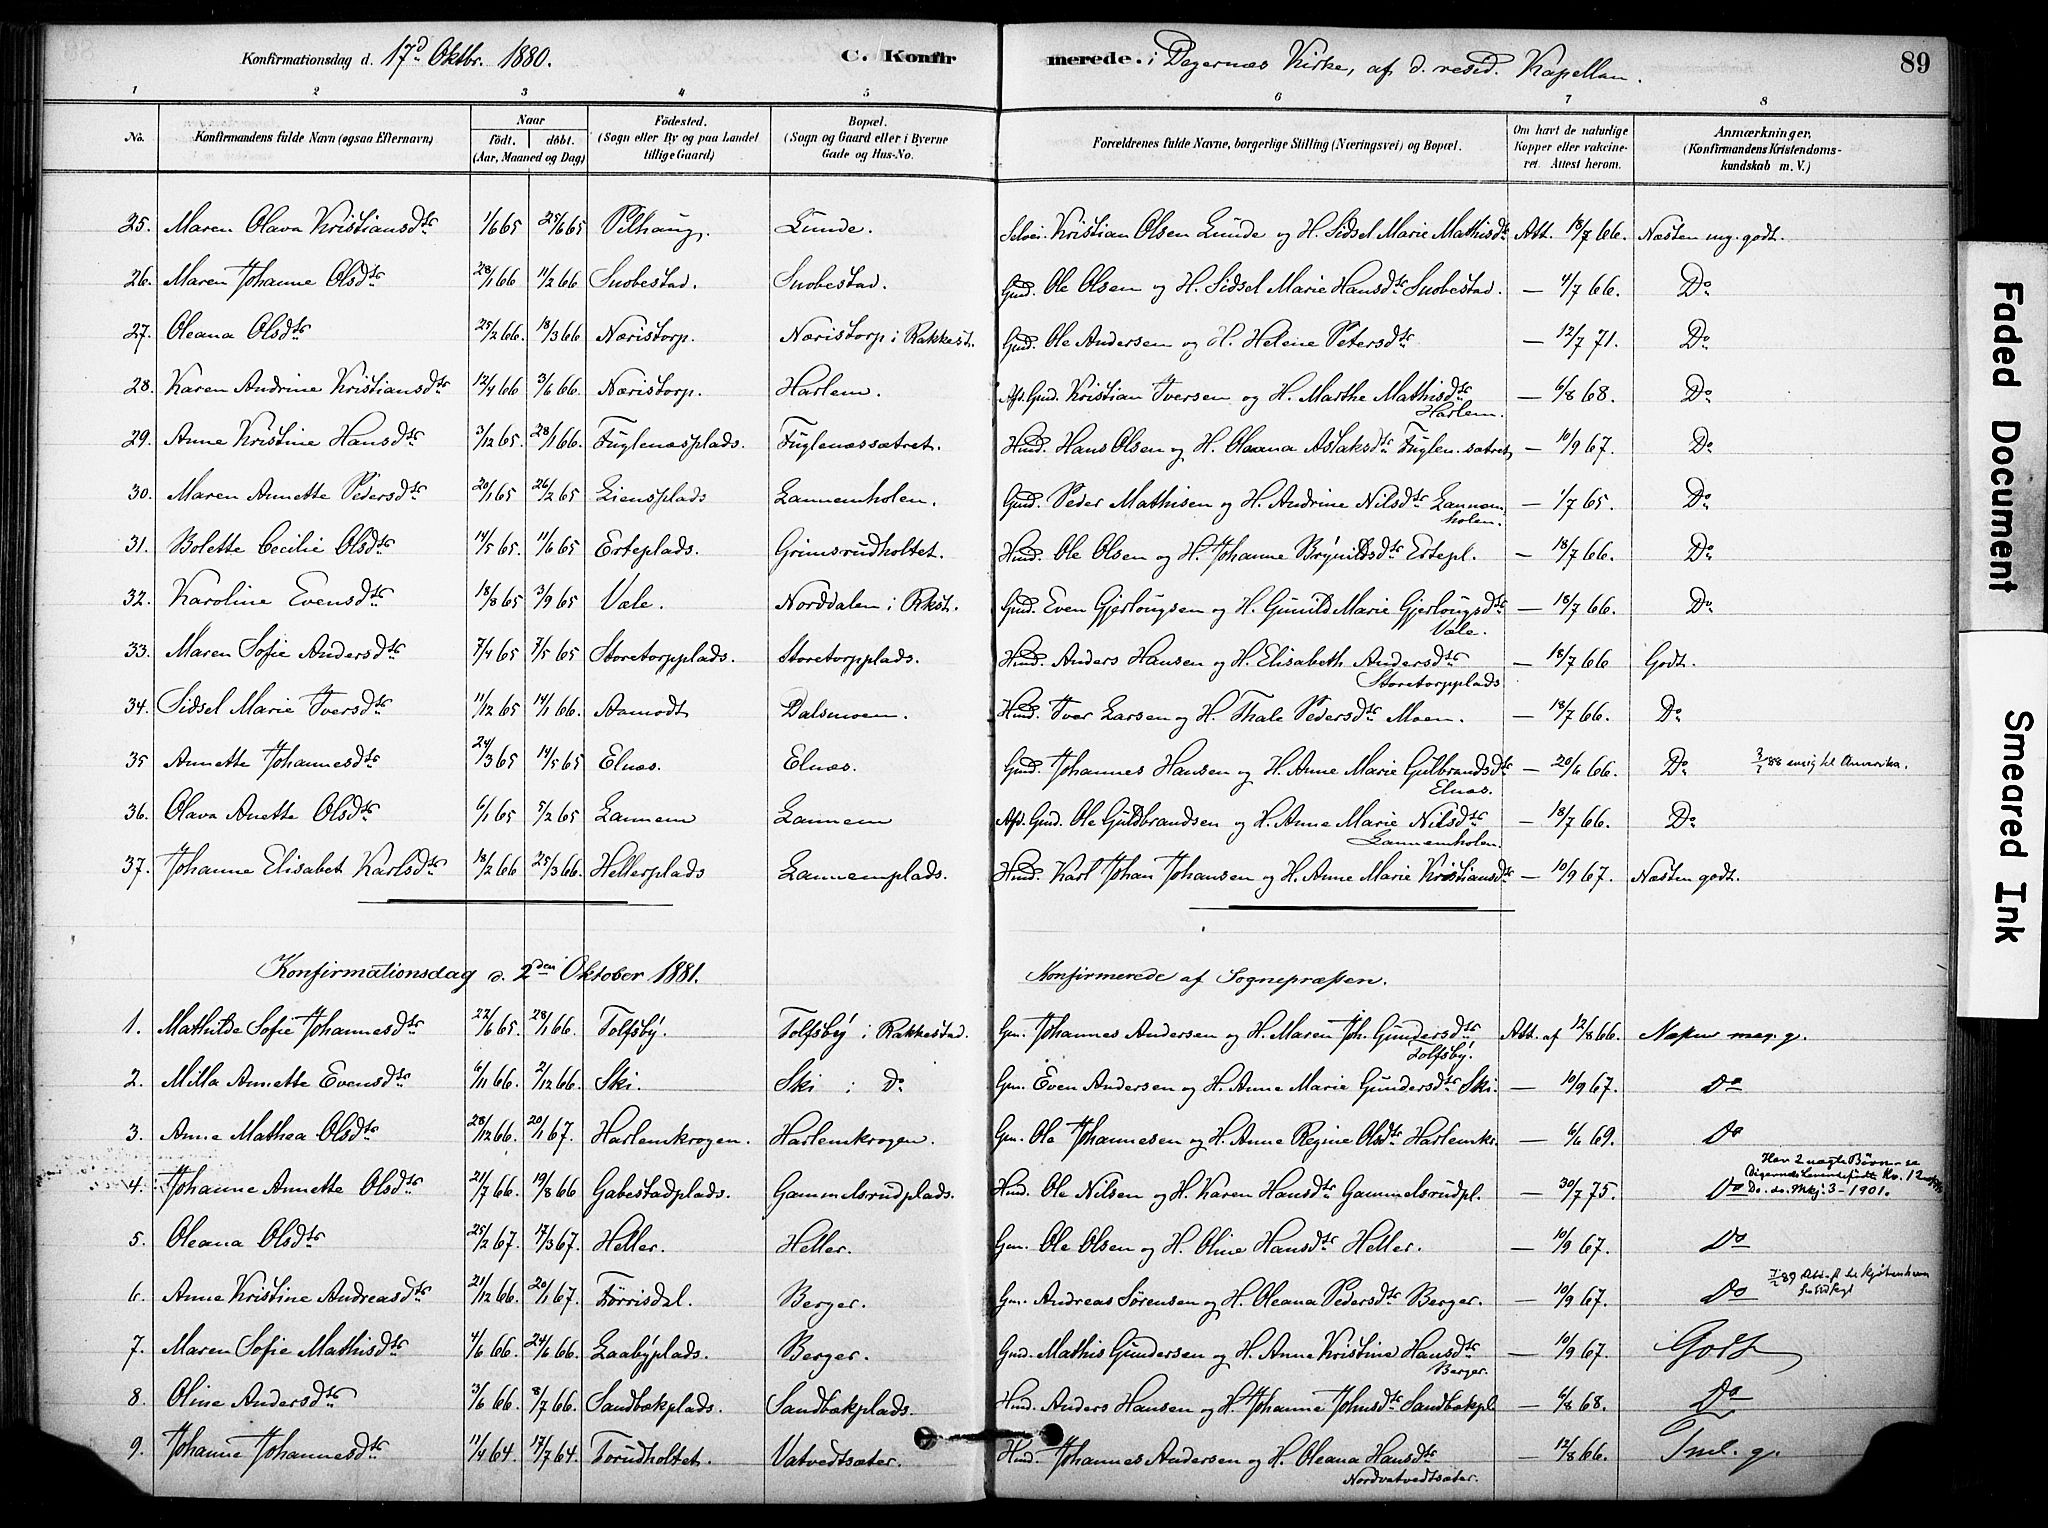 Konfirmationsdag d. 17d Oktbr. 1880. C. Konfirmerede. i Degernæs Kirke, af d. resid. Kapellan. 89
1 2 3 4 5 6 7 8
No. Konfirmandens fulde Navn (ogsaa Efternavn) Naar födt. döbt. (Aar, Maaned og Dag) Födested. (Sogn eller By og paa Landet tillige Gaard) Bopæl. (Sogn og Gaard eller i Byerne Gade og Hus-No. Forældrenes fulde Navne, borgerlige Stilling (Næringsvei) og Bopæl. Om havt de naturlige Kopper eller vakcineret. Attest herom. Anmærkninger, (Konfirmandens Kristendomskundskab m. V.)
25. Maren Olava Kristiansdtr 1/6 65 25/6 65 Pilhaug. Lunde. Selvei. Kristian Olsen Lunde og H. Sidsel Marie Mathisdtr Att. 18/7 66. Næsten mg. godt.
26. Maren Johanne Olsdtr 28/1 66 11/2 66 Snobestad. Snobestad. Gmd. Ole Olsen og H. Sidsel Marie Hansdtr Snobestad. — 4/7 66. Do
27. Oleana Olsdtr 25/2 66. 18/3 66 Næristorp. Næristorp i Rakkest. Gmd. Ole Andersen og H. Helene Petersdtr — 12/7 71. Do
28. Karen Andrine Kristiansdtr 12/4 66 3/6 66. Næristorp. Harlem. Afs. Gmd. Kristian Iversen og H. Marthe Mathisdtr Harlem. — 6/8 68. Do
29. Anne Kristine Hansdtr 3/12 65. 28/1 66. Fuglenæsplads. Fuglenæssætret. Hmd. Hans Olsen og H. Oleana Aslaksdtr Fuglen.sætret — 10/9 67. Do
30. Maren Annette Pedersdtr 20/1 65 26/2 65 Liensplads Lannemholen. Gmd. Peder Mathisen og H. Andrine Nilsdtr Lannemholen. — 1/7 65. Do
31. Bolette Cecilie Olsdtr 14/5 65. 11/6 65 Erteplads. Grimsrudholtet. Hmd. Ole Olsen og H. Johanne Brynildsdtr Ertepl. — 18/7 66. Do
32. Karoline Evensdtr 18/8 65 3/9 65 Væle. Norddalen i Rkst. Gmd. Even Gjerlougsen og H. Gunild Marie Gjerlougsdtr Væle. — 18/7 66. Do
33. Maren Sofie Andersdtr 7/4 65 7/5 65 Storetorpplads. Storetorpplads. Hmd. Anders Hansen og H. Elisabeth Andersdtr Storetorpplads — 18/7 66 Godt.
34. Sidsel Marie Iversdtr 11/12 65 14/1 66. Aamodt Dalsmoen. Hmd. Iver Larsen og H. Thale Pedersdtr Moen. — 18/7 66. Do
35 Annette Johannesdtr 24/3 65 14/5 65 Elnæs. Elnæs. Gmd. Johannes Hansen og H. Anne Marie Gulbrandsdtr Elnæs. — 20/6 66. Do 3/7 88 emig til Amerika.
36. Olava Anette Olsdtr 6/1 65 5/2 65 Lannem Lannem Afs. Gmd. Ole Guldbrandsen og H. Anne Marie Nilsdtr Lannemholen. — 18/7 66. Do
37. Johanne Elisabet Karlsdtr 18/2 66 25/3 66. Hellerplads Lannemplads. Hmd. Karl Johan Johansen og H. Anne Marie Kristiansdtr — 10/9 67. Næsten godt.
Konfirmationsdag d. 2den Oktober 1881. Konfirmerede af Sognepræsten.
1. Mathilde Sofie Johannesdtr 22/6 65. 28/1 66. Tolfsby. Tolfsby i Rakkestad. Gm. Johannes Andersen og H. Maren Joh. Gundersdtr Tolfsby. Att. af 12/8 66. Næsten meg. g.
2. Milla Annette Evensdtr 6/11 66. 2/12 66. Ski. Ski i Do Gm. Even Andersen og H. Anne Marie Gundersdtr Ski. — 10/9 67. Do
3. Anne Mathea Olsdtr 28/12 66. 20/1 67. Harlemkrogen. Harlemkrogen. Gm. Ole Johannesen og H. Anne Regine Olsdtr Harlemkr. — 6/6 69. Do
4. Johanne Annette Olsdtr 21/7 66. 19/8 66 Gabestadplads. Gammelsrudplads. Hmd. Ole Nilsen og H. Karen Hansdtr Gammelsrudpl. — 30/7 75. Do Har 2 uægte Børn - se Digernæs Levendefødte No. 12 Do. do. Mkj. 3 - 1901.
5. Oleana Olsdtr 25/2 67. 17/3 67. Heller. Heller. Gm. Ole Olsen og H. Oline Hansdtr Heller. — 10/9 67. Do
6. Anne Kristine Andreasdtr 21/12 66. 20/1 67. Förrisdal. Berger. Gm. Andreas Sörensen og H. Oleana Pedersdtr Berger. — 10/9 67. Do 7/2 89 til Kjøbenhavn
7. Maren Sofie Mathisdtr 4/6 66. 24/6 66. Laabyplads. Berger. Gmd. Mathis Gundersen og H. Anne Kristine Hansdtr Berger. — 10/9 67. Godt
8. Oline Andersdtr 3/6 66. 8/7 66. Sandbækplads. Sandbækplads. Hmd. Anders Hansen og H. Johanne Johnsdtr Sandbækpl — 6/8 68. Do
9. Johanne Johannesdtr 11/4 64. 17/7 64. Torudholtet. Vatvedtsæter. Hmd. Johannes Andersen og H. Oleana Hansdtr Nordvatvedtsæter. — 12/8 66. Tml. g.
Faded Document
Smeared Ink